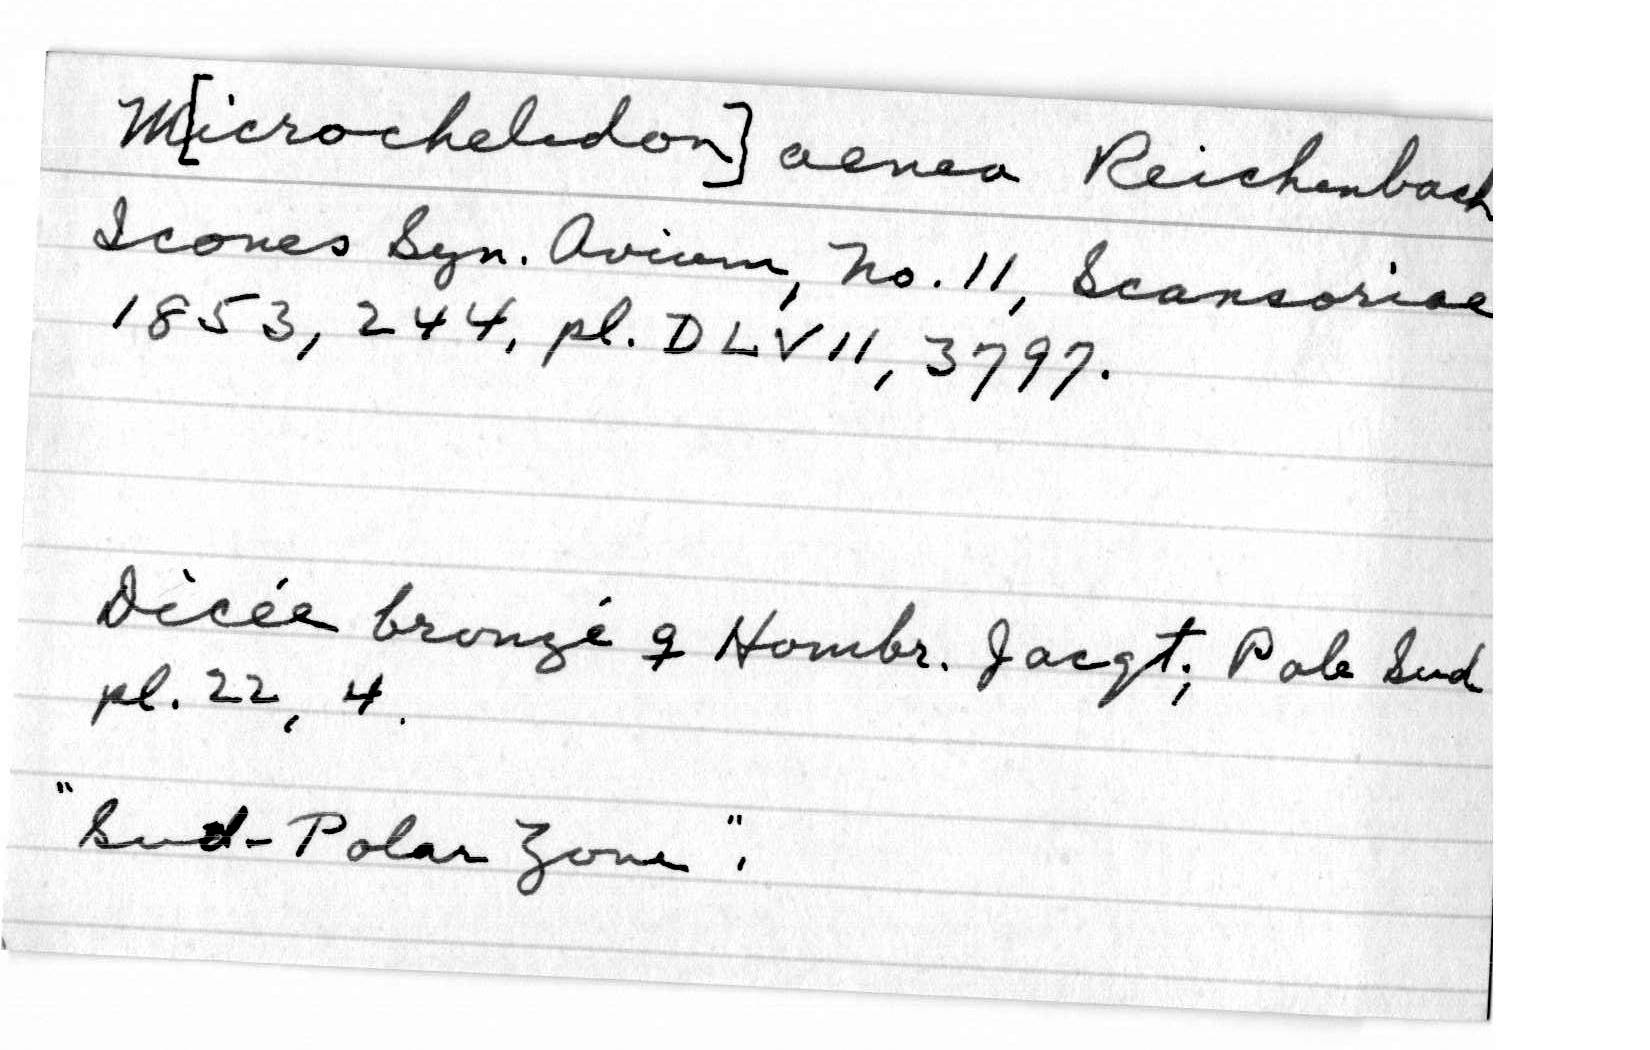 M[icrochelidon] aenea Reichenbach
Icones Syn. Avium, No. 11, Scansoriae
1853, 244, pl. DLVII, 3797.
Dicée bronzé ♀ Hombr. Jacqt; Pole Sud
pl. 22, 4.
"Sud-Polar Zone".